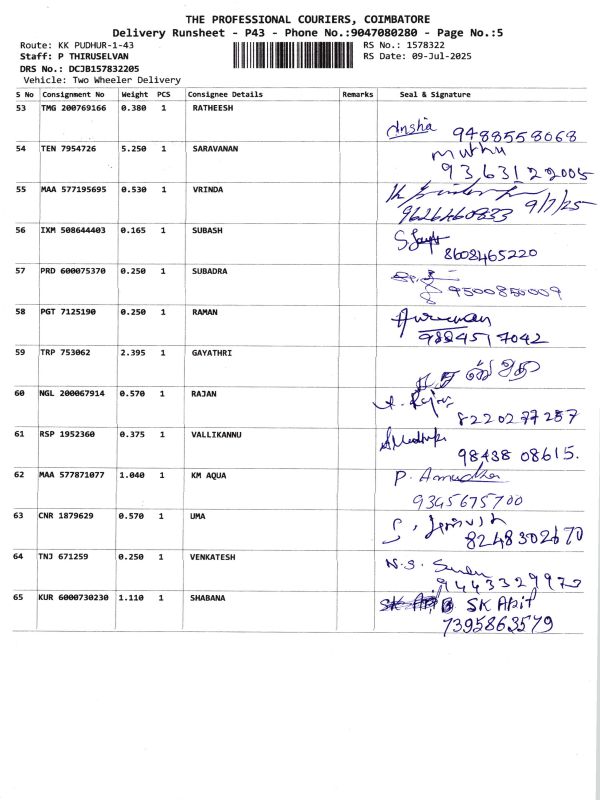 THE PROFESSIONAL COURIERS, COIMBATORE
Delivery Runsheet - P43 - Phone No.:9047080280 - Page No.:5
Route: KK PUDHUR-1-43 RS No.: 1578322
Staff: P THIRUSELVAN RS Date: 09-Jul-2025
DRS No.: DCJB157832205
Vehicle: Two Wheeler Delivery
S No Consignment No Weight PCS Consignee Details Remarks Seal & Signature
53 TMG 200769166 0.380 1 RATHEESH
Ansha 9488558068
54 TEN 7954726 5.250 1 SARAVANAN
Muthu
93,631 22005
55 MAA 577195695 0.530 1 VRINDA
9626460833 9/7/25
56 IXM 508644403 0.165 1 SUBASH
8608465220
57 PRD 600075370 0.250 1 SUBADRA
9500850009
58 PGT 7125190 0.250 1 RAMAN
9884517042
59 TRP 753062 2.395 1 GAYATHRI
60 NGL 200067914 0.570 1 RAJAN
8220277257
61 RSP 1952360 0.375 1 VALLIKANNU
98438 08615.
62 MAA 577871077 1.040 1 KM AQUA
P. Amudha
9345675700
63 CNR 1879629 0.570 1 UMA
8248302670
64 TNJ 671259 0.250 1 VENKATESH
N.S.
65 KUR 6000730230 1.110 1 SHABANA
SK Abit
7395863579